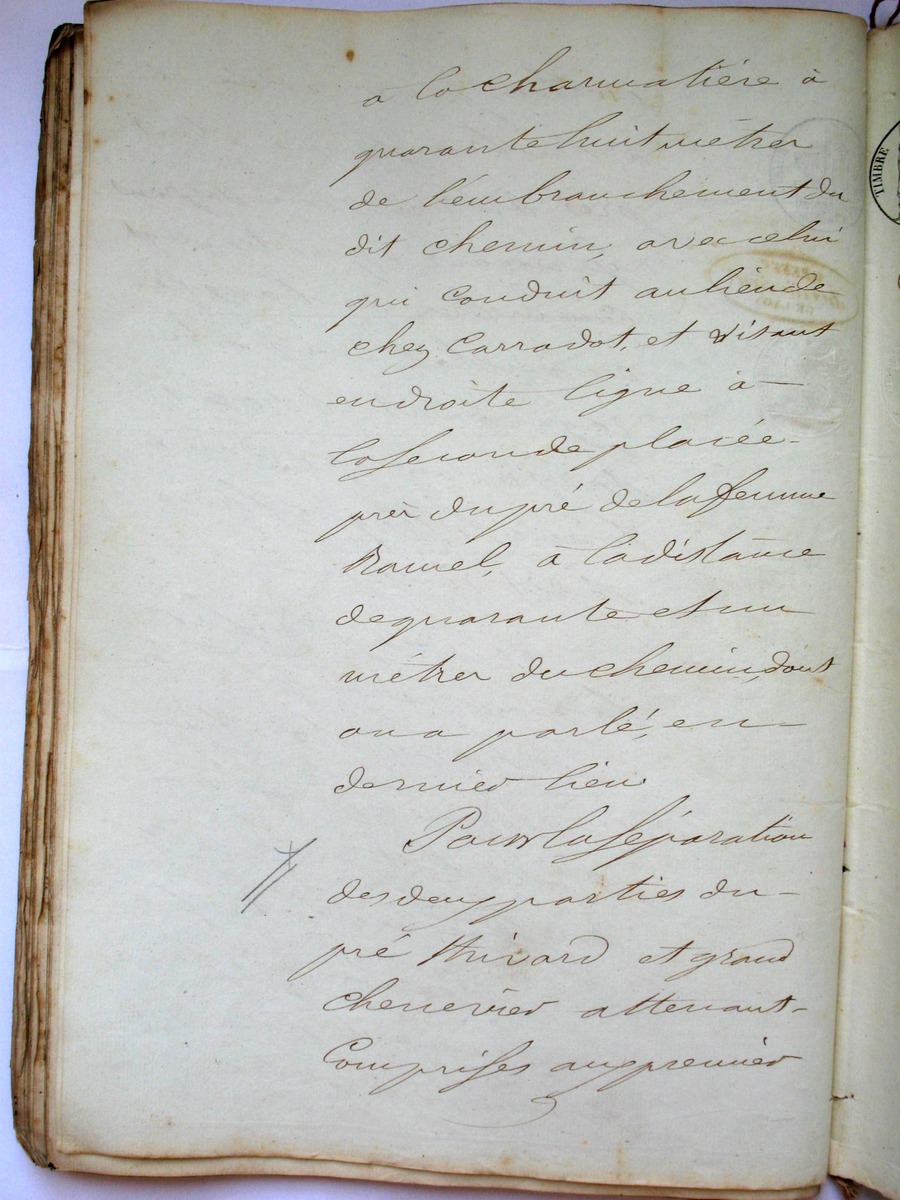 a la charmatière à
quarante huit mètres
de l'embranchement du
dit chemin, avec celui
qui conduit au lieu de
chez Carradot, et visant
en droite ligne à -
la seconde placée -
près du pré de la femme
Ramel, à la distance
de quarante et un
mètres du chemin, dont
on a parlé, en -
dernier lieu
Pour la séparation
des deux parties du -
pré Thivard et grand
chenevier attenant -
Comprises aux premier
TIMBRE